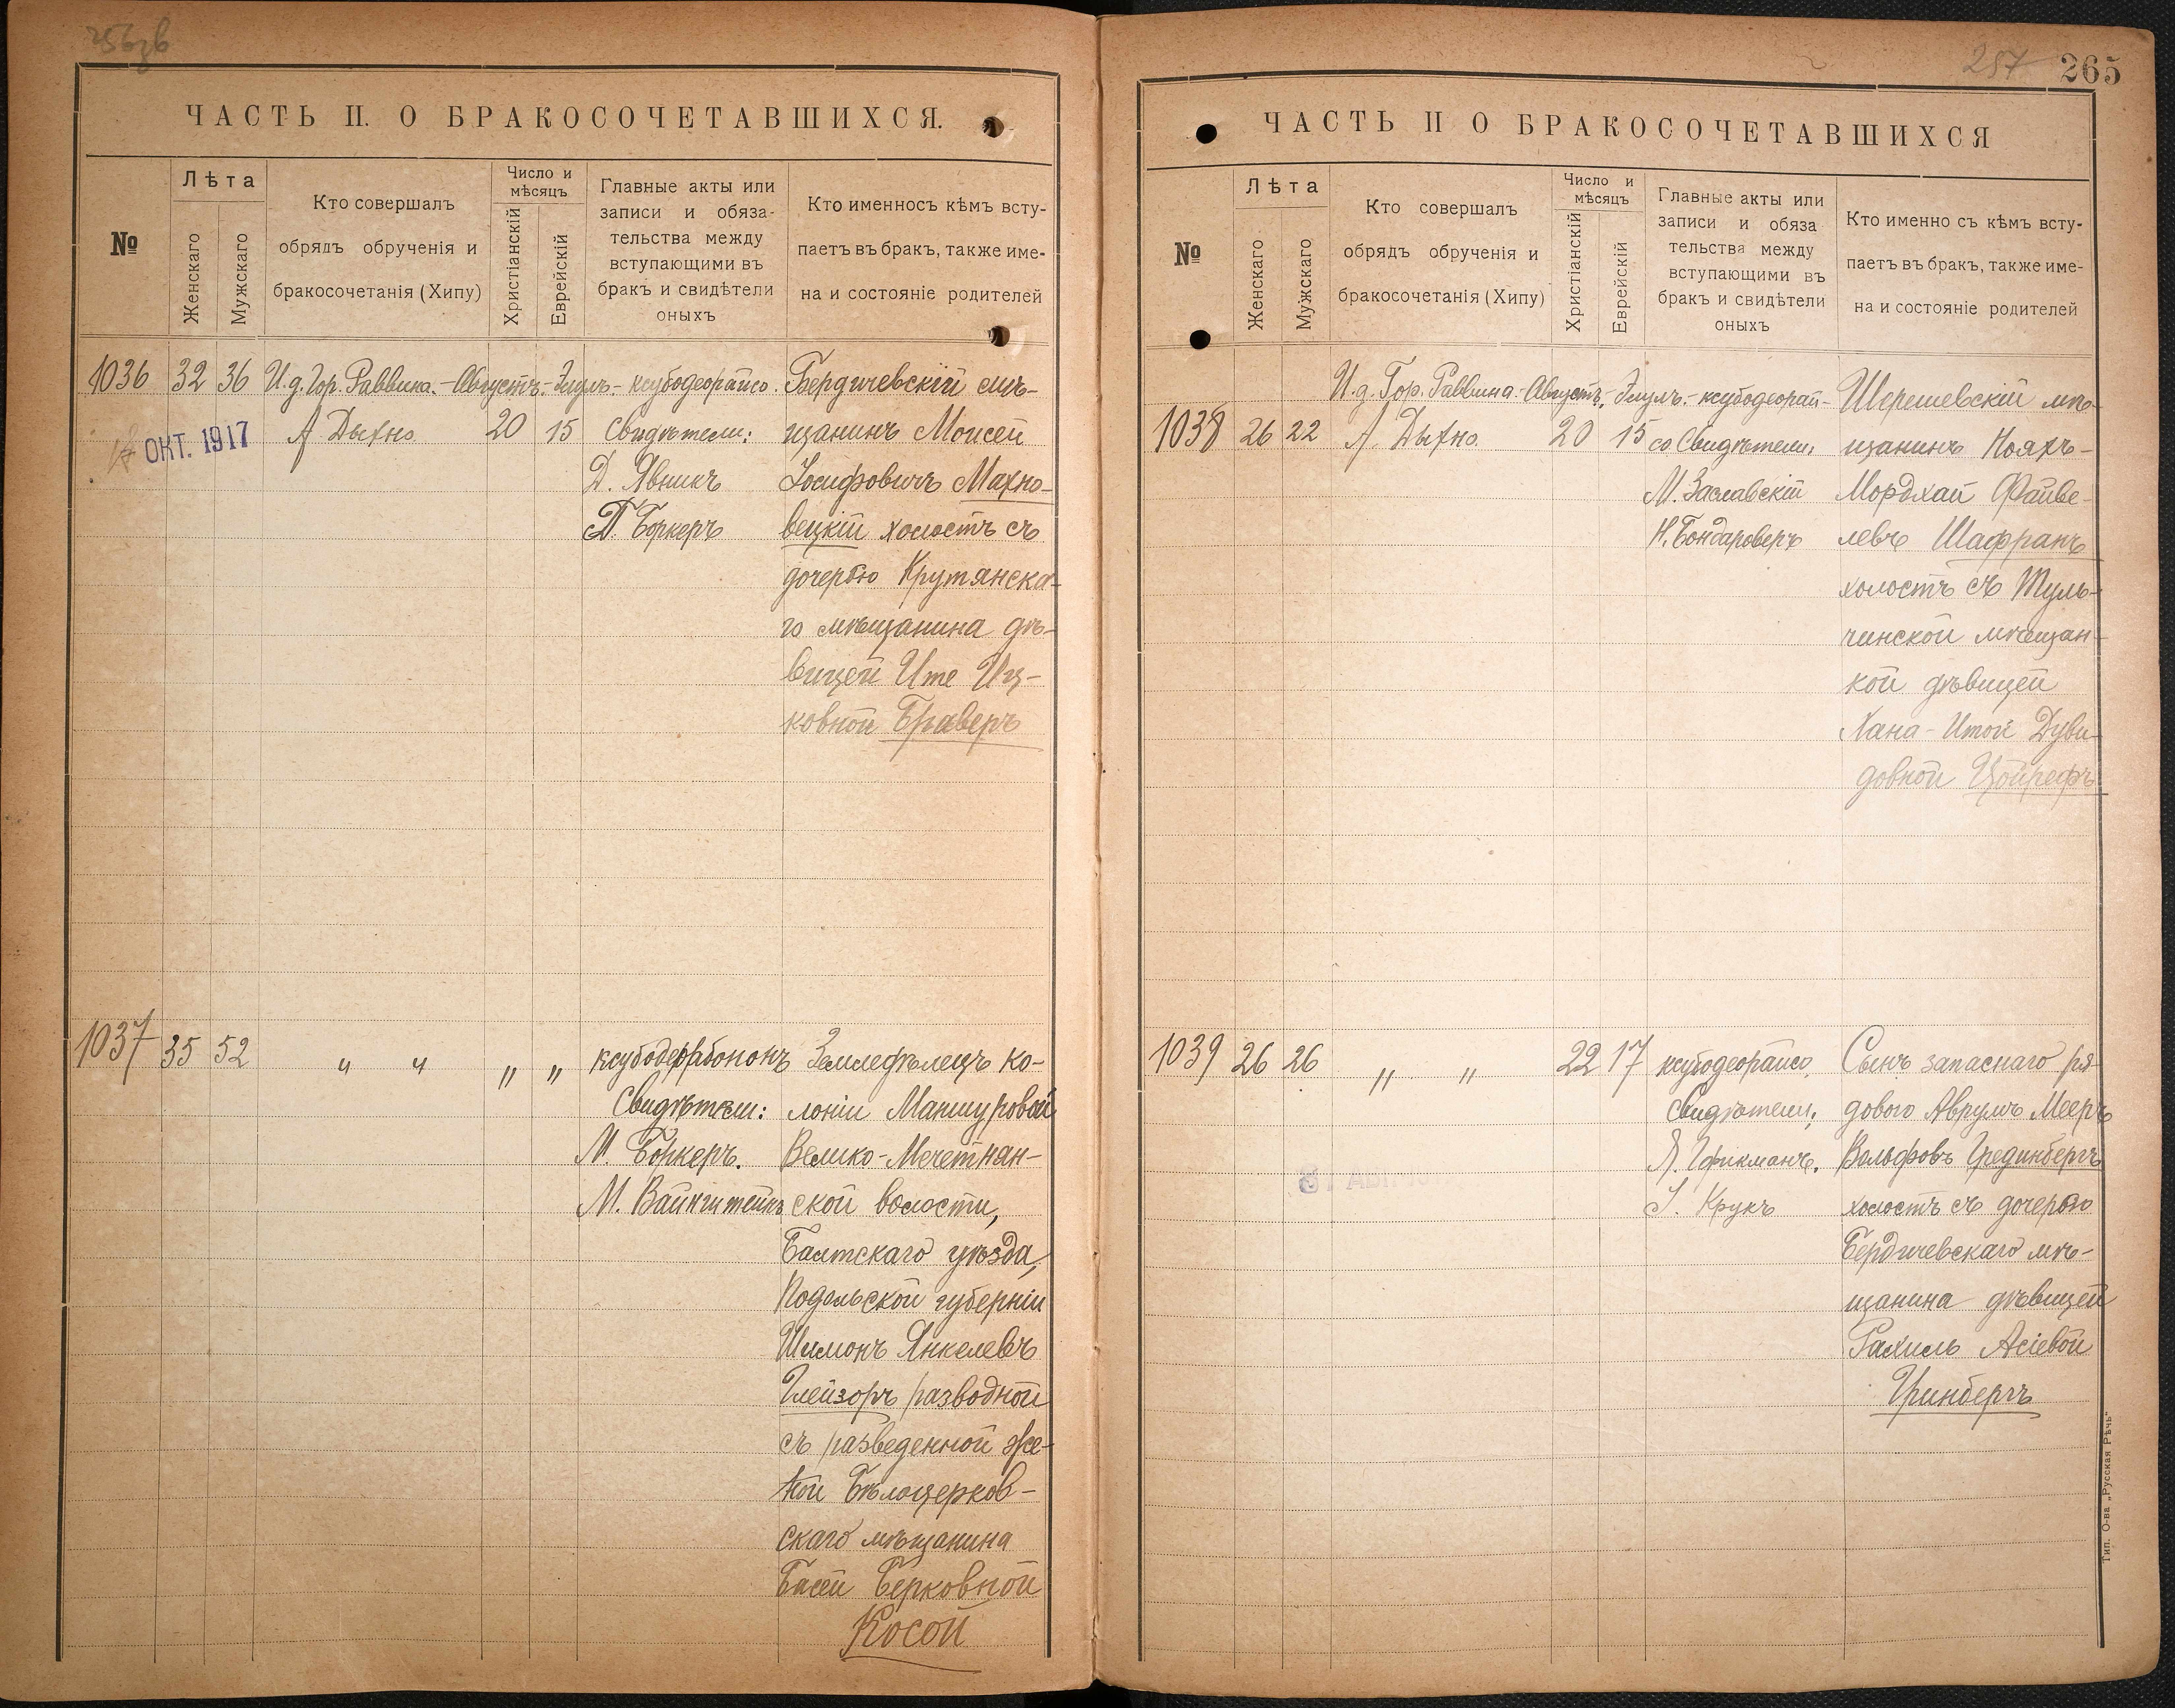 265
257
ЧАСТЬ II. О БРАКОСОЧЕТАВШИХСЯ.
№
Лѣта
Женскаго
Мужскаго
Кто совершалъ
обрядъ обрученія и
бракосочетанія (Хипу)
Число и
мѣсяцъ
Христіанскій
Еврейскій
Главные акты или
записи и обяза-
тельства между
вступающими въ
бракъ и свидѣтели
оныхъ
Кто именносъ кѣмъ всту-
паетъ въ бракъ, также име-
на и состояніе родителей
1036 32 36 И.д. Гор. Раввина.- Августъ.- Элулъ.- ксубодеорайсо.
А Дыхно 20 15 Свидѣтели:
18 ОКТ. 1917
Д. Явникъ
Боркеръ
Бердичевскій мѣ-
щанинъ Моисей
Іосифовичъ Махно-
вецкій холостъ съ
дочерью Крутянска-
го мѣщанина дѣ-
вицей Ите Иц-
ковной Браверъ
1037 35 52 " " " "
Свидѣтели:
М. Боркеръ.
М. Вайнштейнъ
Земледѣлецъ ко-
лоніи Маншуровой
Велико-Мечетнян-
ской волости,
Балтскаго уѣзда,
Подольской губерніи
Шимонъ Янкелевъ
Глейзеръ разводной
съ разведенной же-
ной Бѣлоцерков-
скаго мѣщанина
Басей Берковной
Косой
ЧАСТЬ II О БРАКОСОЧЕТАВШИХСЯ
№
Лѣта
Женскаго
Мужскаго
Кто совершалъ
обрядъ обрученія и
бракосочетанія (Хипу)
Число и
мѣсяцъ
Христіанскій
Еврейскій
Главные акты или
записи и обяза
тельства между
вступающими въ
бракъ и свидѣтели
оныхъ
Кто именно съ кѣмъ всту-
паетъ въ бракъ, также име-
на и состояніе родителей
И.д. Гор. Раввина.- Августъ.- Элулъ.- ксубодеорай-
1038 26 22 А. Дыхно 20 15 со Свидѣтели:
М. Заславскій
Н. Бондароверъ
Шерешевскій мѣ-
щанинъ Нояхъ-
Мордхай Файве-
левъ Шафранъ
холостъ съ Туль-
чинской мѣщан-
кой дѣвицей
Хана-Итой Дуви-
довной Цойрефъ
1039 26 26 " " 22 17 ксубодеорайсо.
Свидѣтели:
І. Крукъ
Сынъ запаснаго ря-
дового Аврумъ Мееръ
Вольфовъ Грединбергъ
холостъ съ дочерью
Бердичевскаго мѣ-
щанина дѣвицей
Рахиль Асіевой
Гринбергъ
Тип. О-ва „Русская Рѣчь"